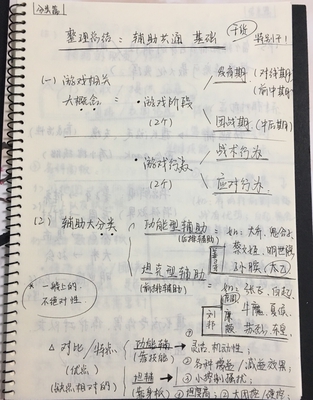 分类篇
整理总结：辅助共通 基础 干货 特别干！
(一) 游戏相关
大概念：
·游戏阶段
(2个)
发育期 (对线期)
(前中期)
团战期 (中后期)
·游戏行为
(2个)
战术行为
应对行为
(2) 辅助大分类
功能型辅助
(后排辅助)
如：大乔、鬼谷子
蔡文姬、明世隐
孙膑、(太乙)
坦克型辅助
(前排辅助)
如：张飞、白起
刘邦
牛魔
苏烈、东皇
*一般上的,
不绝对性.
△ 对比/特点
(优点)
(缺点是相对的)
功能辅
(靠技能)
① 灵活,机动性；
② 各种增益/减益效果；
③ 小控制骚扰；
坦辅
(靠身板)
① 坦度高；② 大团控/硬控；